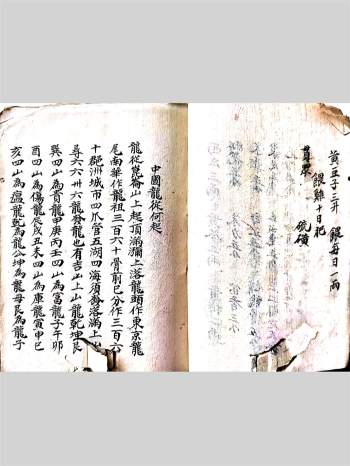 黄豆子三升 銀每日一兩
餵雞十日肥
貫眾 硫磺
中國龍從何起
龍從崑崙山上起頂滿瀰上落龍頭作東京龍
尾南華作龍祖三百六十骨前已分作三百六
十郡洲城市四爪管五湖四海須香落滿上山
尋六六卅六龍發龍也有吉山上山龍乾坤艮
巽四山為貴龍甲庚丙壬四山為富龍子午卯
酉四山為傷龍辰戌丑未四山為庫龍寅申巳
亥四山為瘟龍乾為龍公坤為龍母艮為龍子